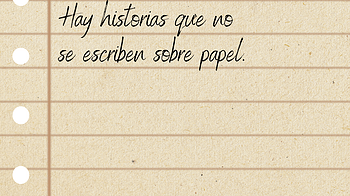 Hay historias que no
se escriben sobre papel.